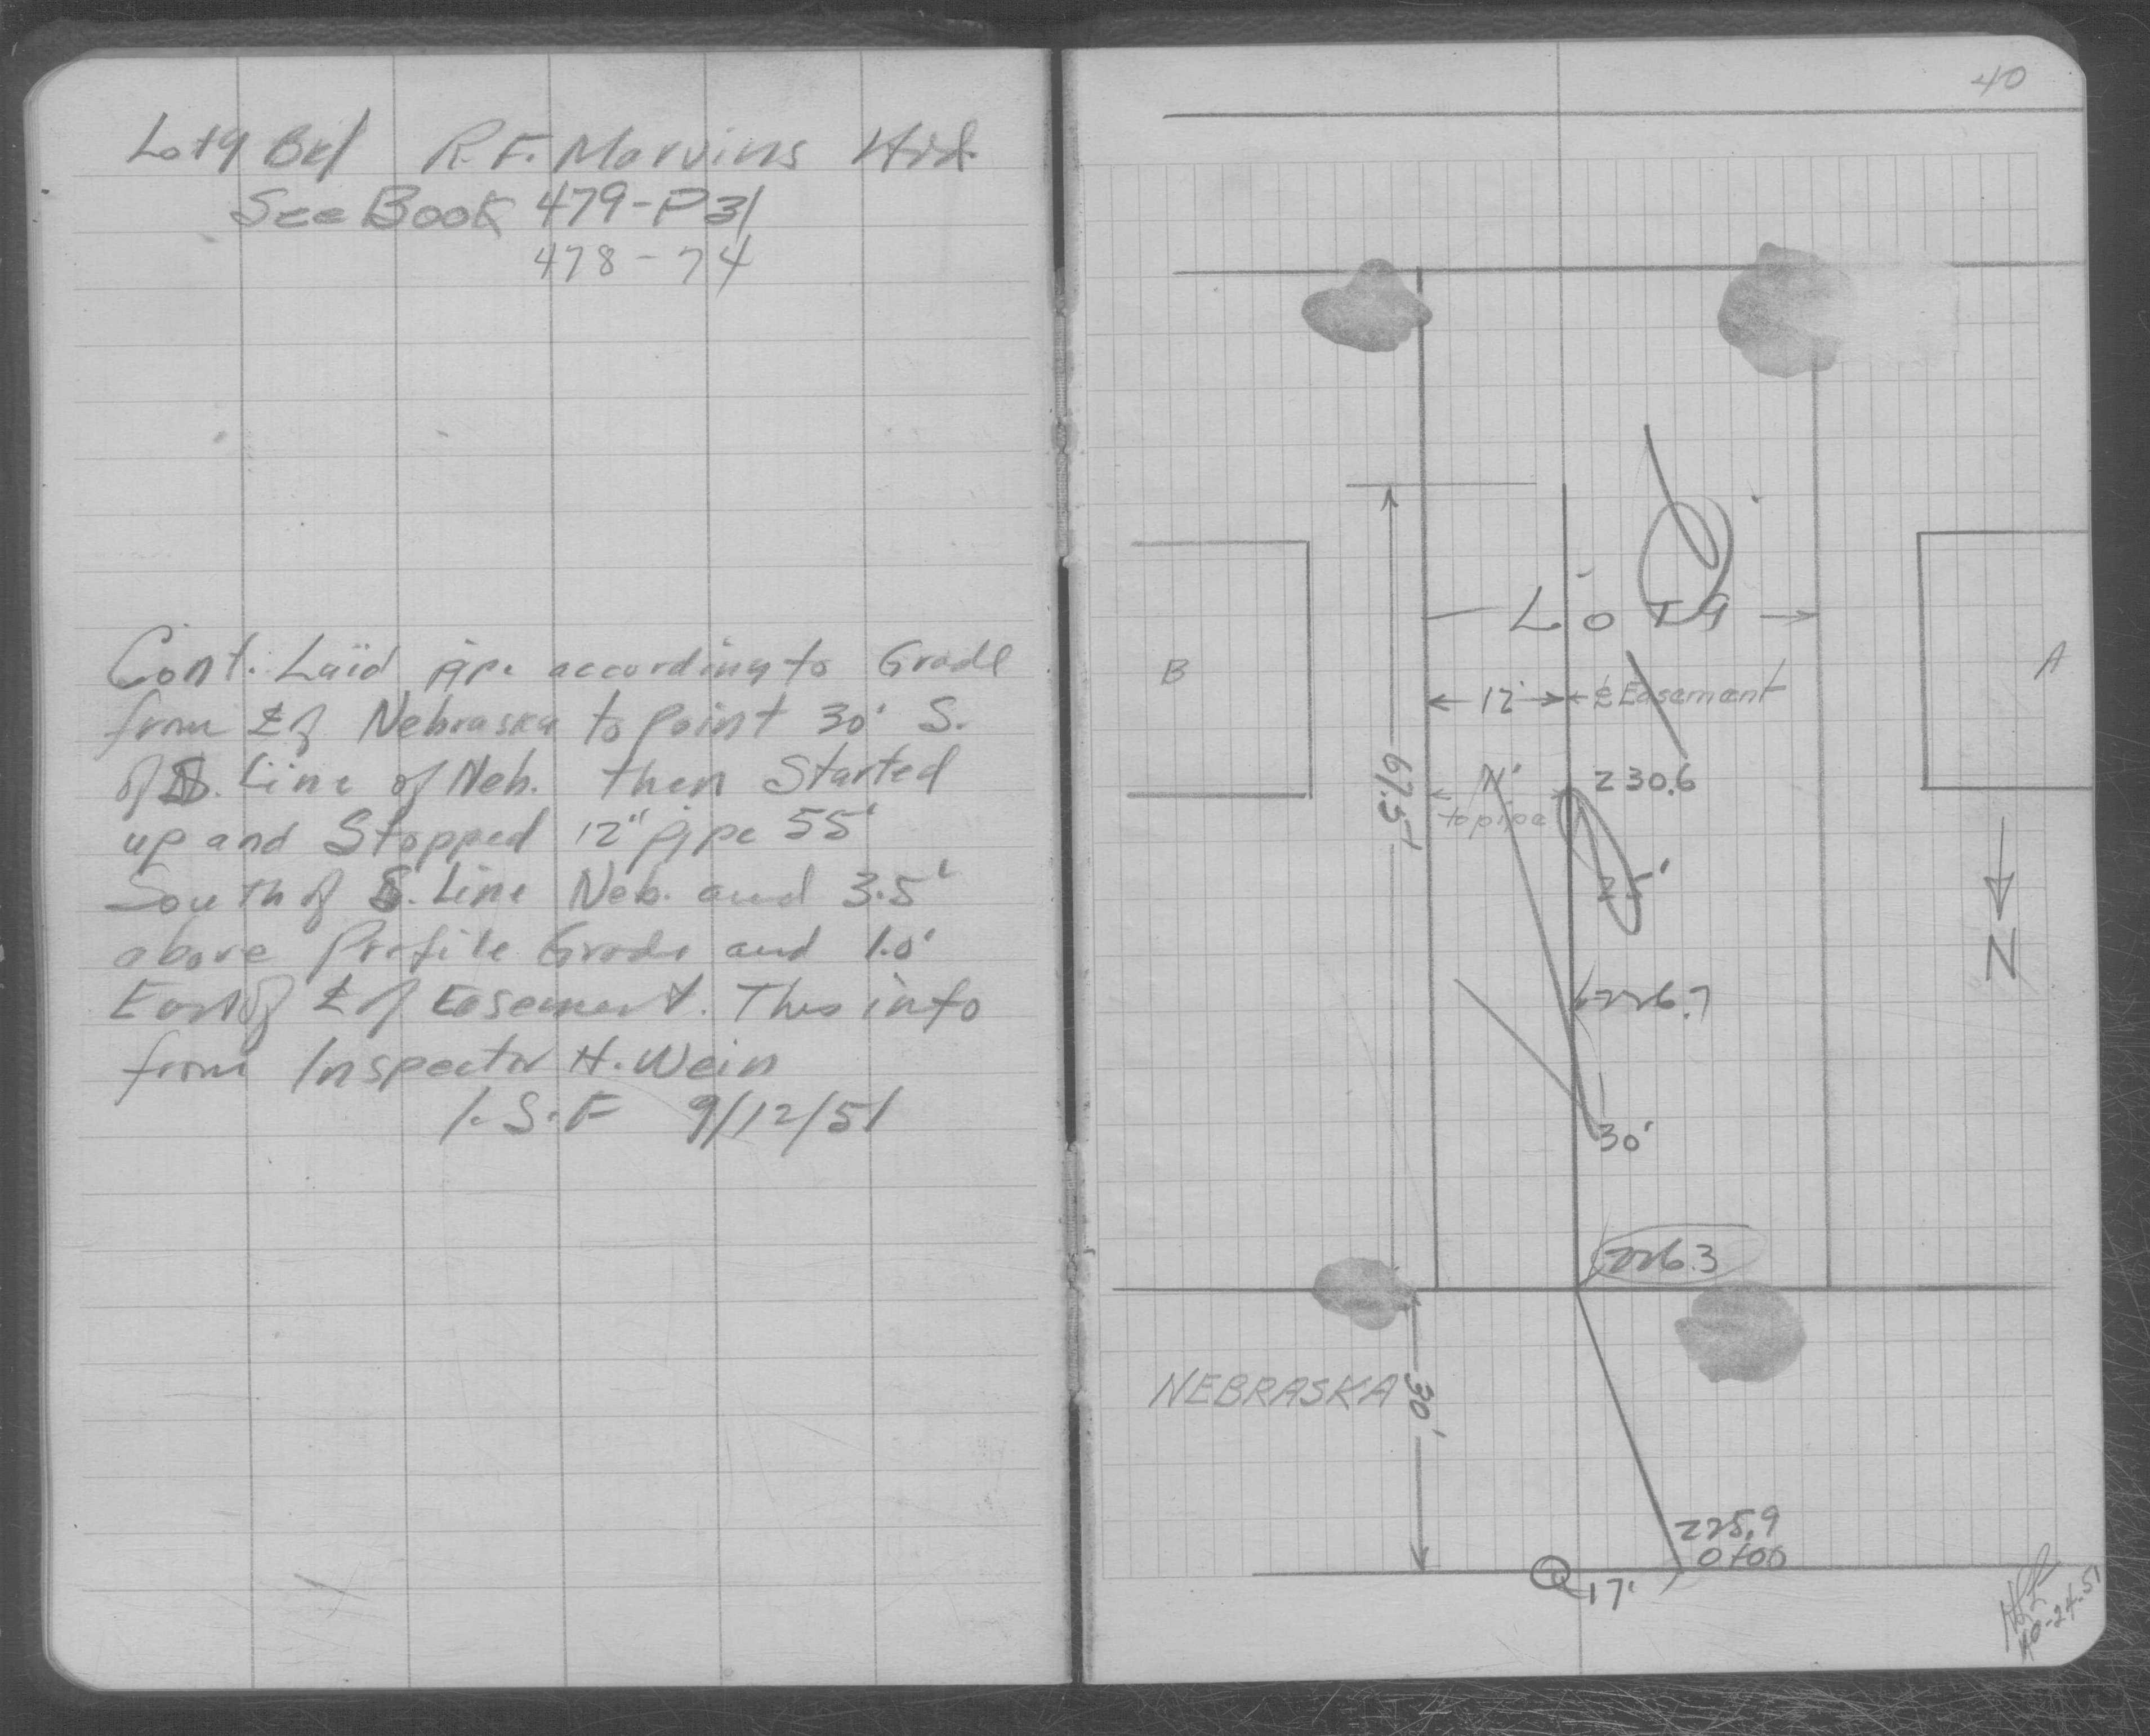 Lot 9 Bk 1 R.F. Marvins Hid.
See Book 479-P31
478-74
Cont. Laid pipe according to Grade
from ℄ of Nebraska to point 30' S.
of S. Line of Neb. then Started
up and Stopped 12" pipe 55'
South of S. Line Neb. and 3.5'
above Profile Grade and 1.0'
East of ℄ of Easement. This info
from Inspector H. Wein
I.S.F 9/12/51
40
LOT 9
B
A
12'
℄ Easement
67.5'
11'
to pipe
230.6
226.7
N
30'
226.3
NEBRASKA
30'
225.9
0+00
17'
10-24-51